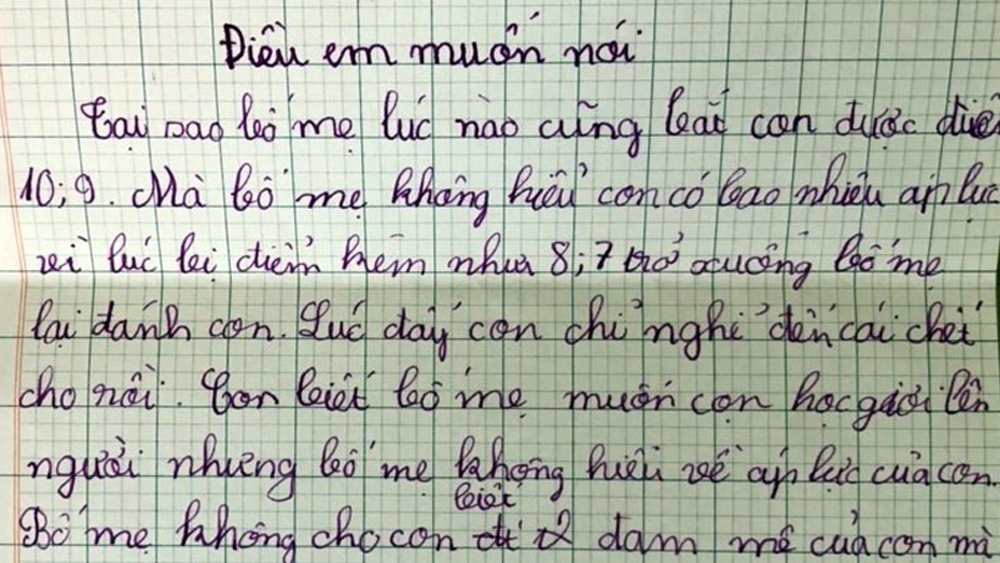 Điều em muốn nói
Tại sao bố mẹ lúc nào cũng bắt con được điể
10; 9. Mà bố mẹ không hiểu con có bao nhiêu áp lực
vì lúc bị điểm kém như 8; 7 trở xuống bố mẹ
lại đánh con. Lúc đấy con chỉ nghỉ đến cái chết
cho rồi. Con biết bố mẹ muốn con học giỏi lên
người nhưng bố mẹ không hiểu về áp lực của con.
biết
Bố mẹ không cho con đam mê của con mà